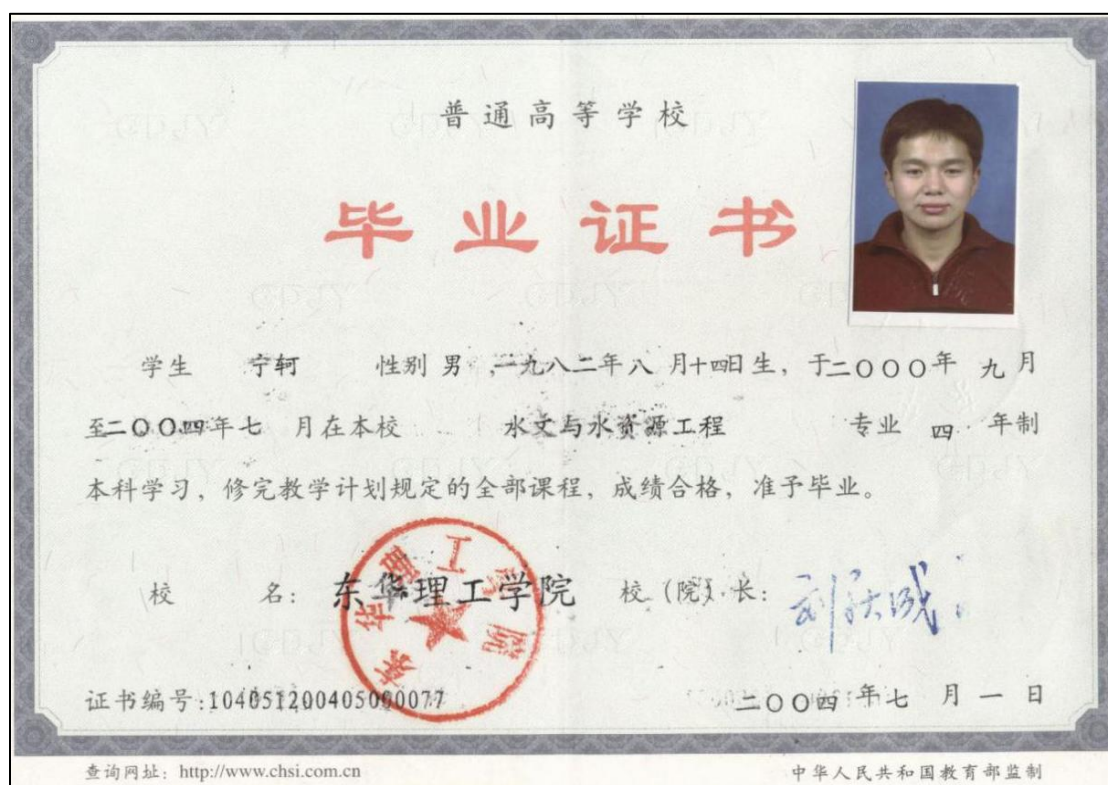 普通高等学校
毕业证书
学生 宁轲 性别 男 ,一九八二年八 月十四日生, 于二○○○年 九 月
至二○○四年七 月在本校 水文与水资源工程 专业 四 年制
本科学习, 修完教学计划规定的全部课程, 成绩合格, 准予毕业。
校 名: 东华理工学院 校(院)长:
东华理工学院
证书编号:104051200405000077 二○○四 年七 月 一 日
查询网址: http://www.chsi.com.cn 中华人民共和国教育部监制